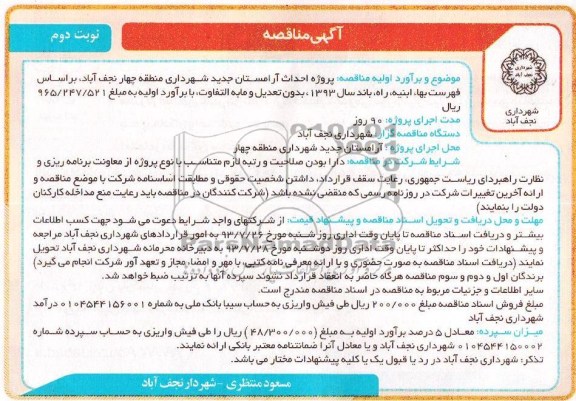 آگهی مناقصه
نوبت دوم
شهرداری
نجف آباد
موضوع و برآورد اولیه مناقصه: پروژه احداث آرامستان جدید شهرداری منطقه چهار نجف آباد، براساس
فهرست بها، ابنیه، راه، باند سال ۱۳۹۳، بدون تعدیل و مابه التفاوت، با برآورد اولیه به مبلغ ۹۶۵/۲۴۷/۵۲۱
ریال
مدت اجرای پروژه: ۹۰ روز
دستگاه مناقصه گزار: شهرداری نجف آباد
محل اجرای پروژه: آرامستان جدید شهرداری منطقه چهار
شرایط شرکت مناقصه: دارا بودن صلاحیت و رتبه لازم متناسب با نوع پروژه از معاونت برنامه ریزی و
نظارت راهبردی ریاست جمهوری، رعایت سقف قرارداد، داشتن شخصیت حقوقی و مطابقت اساسنامه شرکت با موضع مناقصه و
ارائه آخرین تغییرات شرکت در روزنامه رسمی که منقضی نشده باشد (شرکت کنندگان در مناقصه باید رعایت منع مداخله کارکنان
دولت را بنمایند)
مهلت و محل دریافت و تحویل اسناد مناقصه و پیشنهاد قیمت: از شرکتهای واجد شرایط دعوت می شود جهت کسب اطلاعات
بیشتر و دریافت اسناد مناقصه تا پایان وقت اداری روز شنبه مورخ ۹۳/۷/۲۶ به امور قراردادهای شهرداری نجف آباد مراجعه
و پیشنهادات خود را حداکثر تا پایان وقت اداری روز مورخ ۹۳/۷/۲۸ به دبیرخانه محرمانه شهرداری نجف آباد تحویل
نمایند (دریافت اسناد مناقصه به صورت حضوری و با ارائه معرفی نامه کتبی، با مهر و امضا، مجاز و تعهد آور شرکت انجام می گیرد)
برندگان اول و دوم و سوم مناقصه هرگاه حاضر به انعقاد قرارداد نشوند سپرده آنها به ترتیب ضبط خواهد شد.
سایر اطلاعات و جزئیات مربوط به مناقصه در اسناد مناقصه مندرج است.
مبلغ فروش اسناد مناقصه مبلغ ۲۰۰/۰۰۰ ریال طی فیش واریزی به حساب سیبا بانک ملی به شماره ۰۱۰۴۵۴۴۱۵۶۰۰۱ درآمد
شهرداری نجف آباد
میزان سپرده: معادل ۵ درصد برآورد اولیه به مبلغ (۴۸/۳۰۰/۰۰۰) ریال را طی فیش واریزی به حساب سپرده شماره
۰۱۰۴۵۴۴۱۵۰۰۰۲ شهرداری نجف آباد و یا معادل آنرا ضمانتنامه معتبر بانکی ارائه نمایند.
تذکر: شهرداری نجف آباد در رد یا قبول یک یا کلیه پیشنهادات مختار می باشد.
مسعود منتظری - شهردار نجف آباد